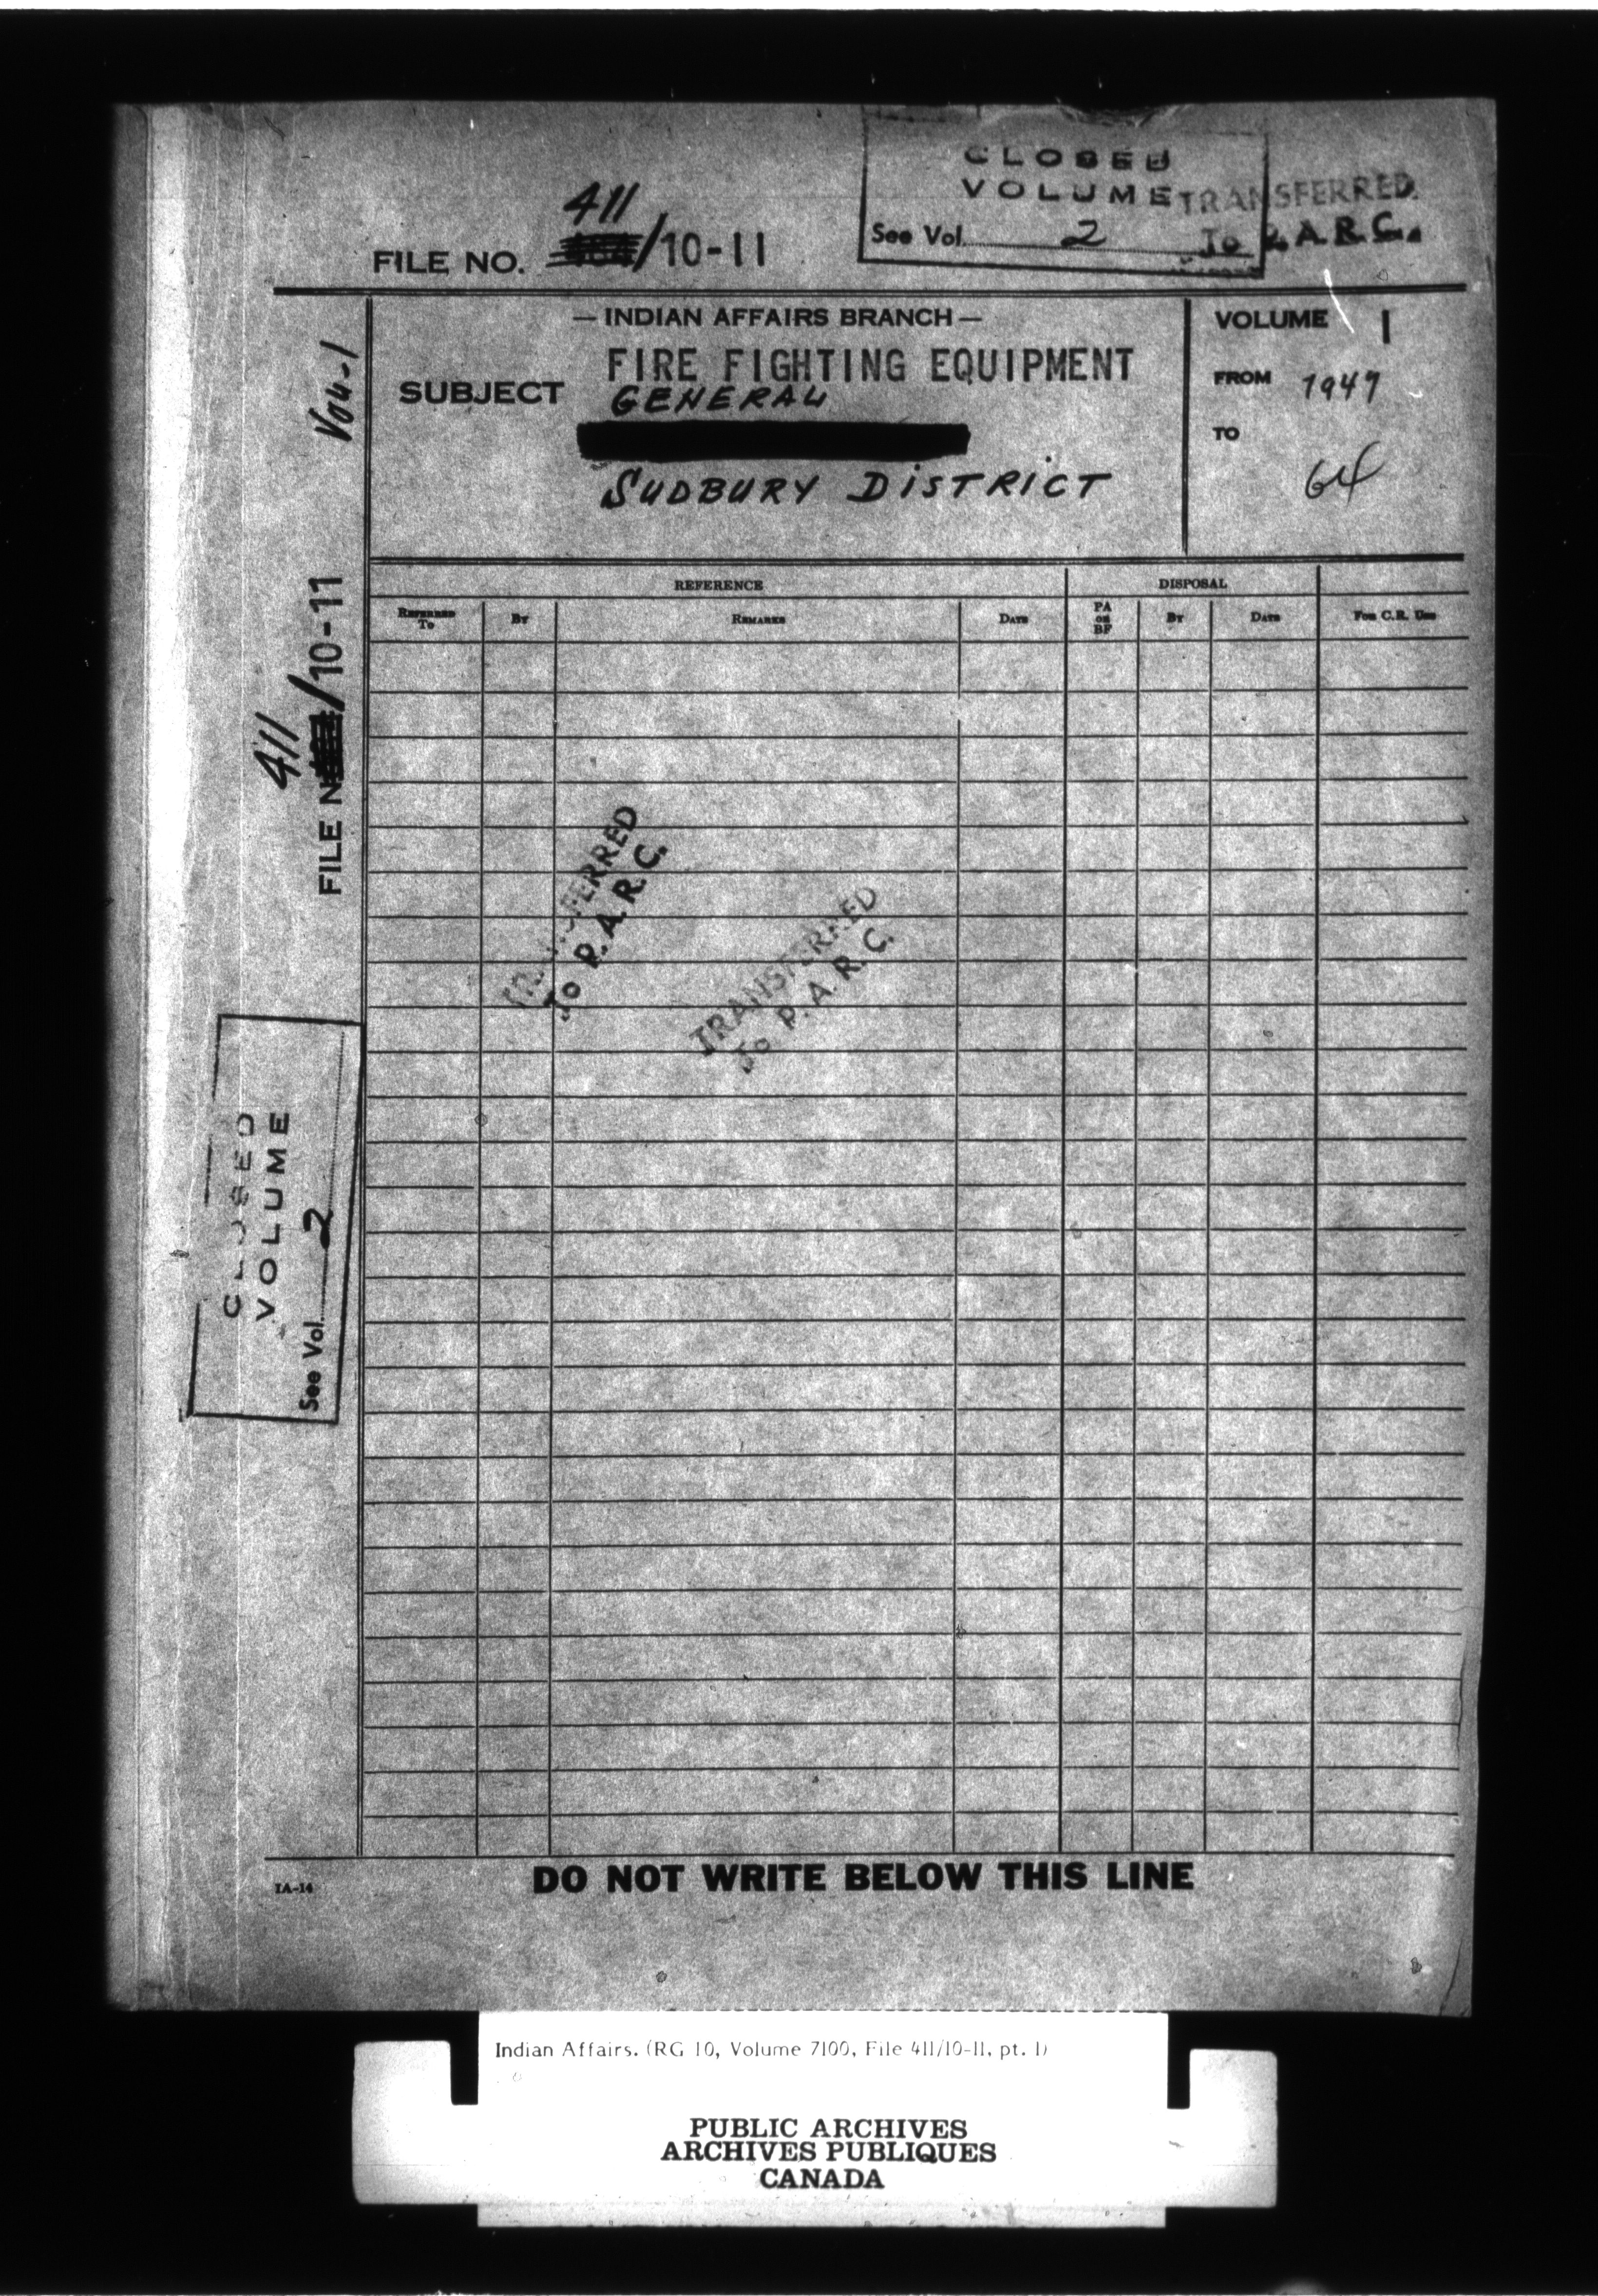 CLOSED
VOLUME
See Vol. 2
TRANSFERRED
To P.A.R.C.
411
FILE NO. /10-11
— INDIAN AFFAIRS BRANCH —
SUBJECT FIRE FIGHTING EQUIPMENT
GENERAL
SUDBURY DISTRICT
VOLUME 1
FROM 1947
TO 64
VOL-1
411
FILE N /10-11
CLOSED
VOLUME
See Vol. 2
REFERENCE DISPOSAL
REFERRED TO BY REMARKS DATE PA OR BF BY DATE FOR C.R. USE
TRANSFERRED
To P.A.R.C.
TRANSFERRED
To P.A.R.C.
IA-14
DO NOT WRITE BELOW THIS LINE
Indian Affairs. (RG 10, Volume 7100, File 411/10-11, pt. 1)
PUBLIC ARCHIVES
ARCHIVES PUBLIQUES
CANADA